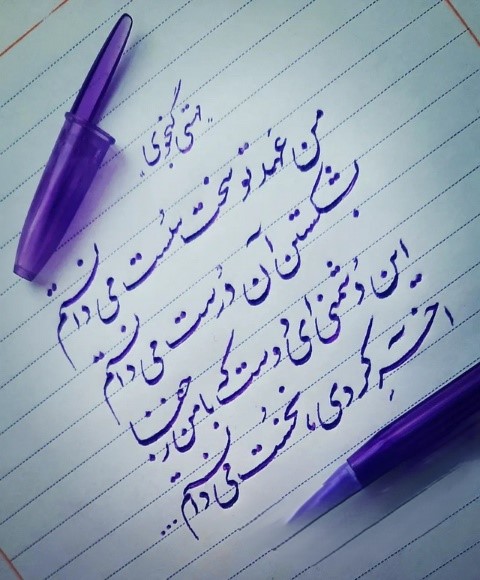 مهستی گنجوی
من عهد تو سخت سست می دانستم
بشکستن آن درست می دانستم
این دشمنی ای دوست که با من ز جفا
آخر کردی، نخست می دانستم...